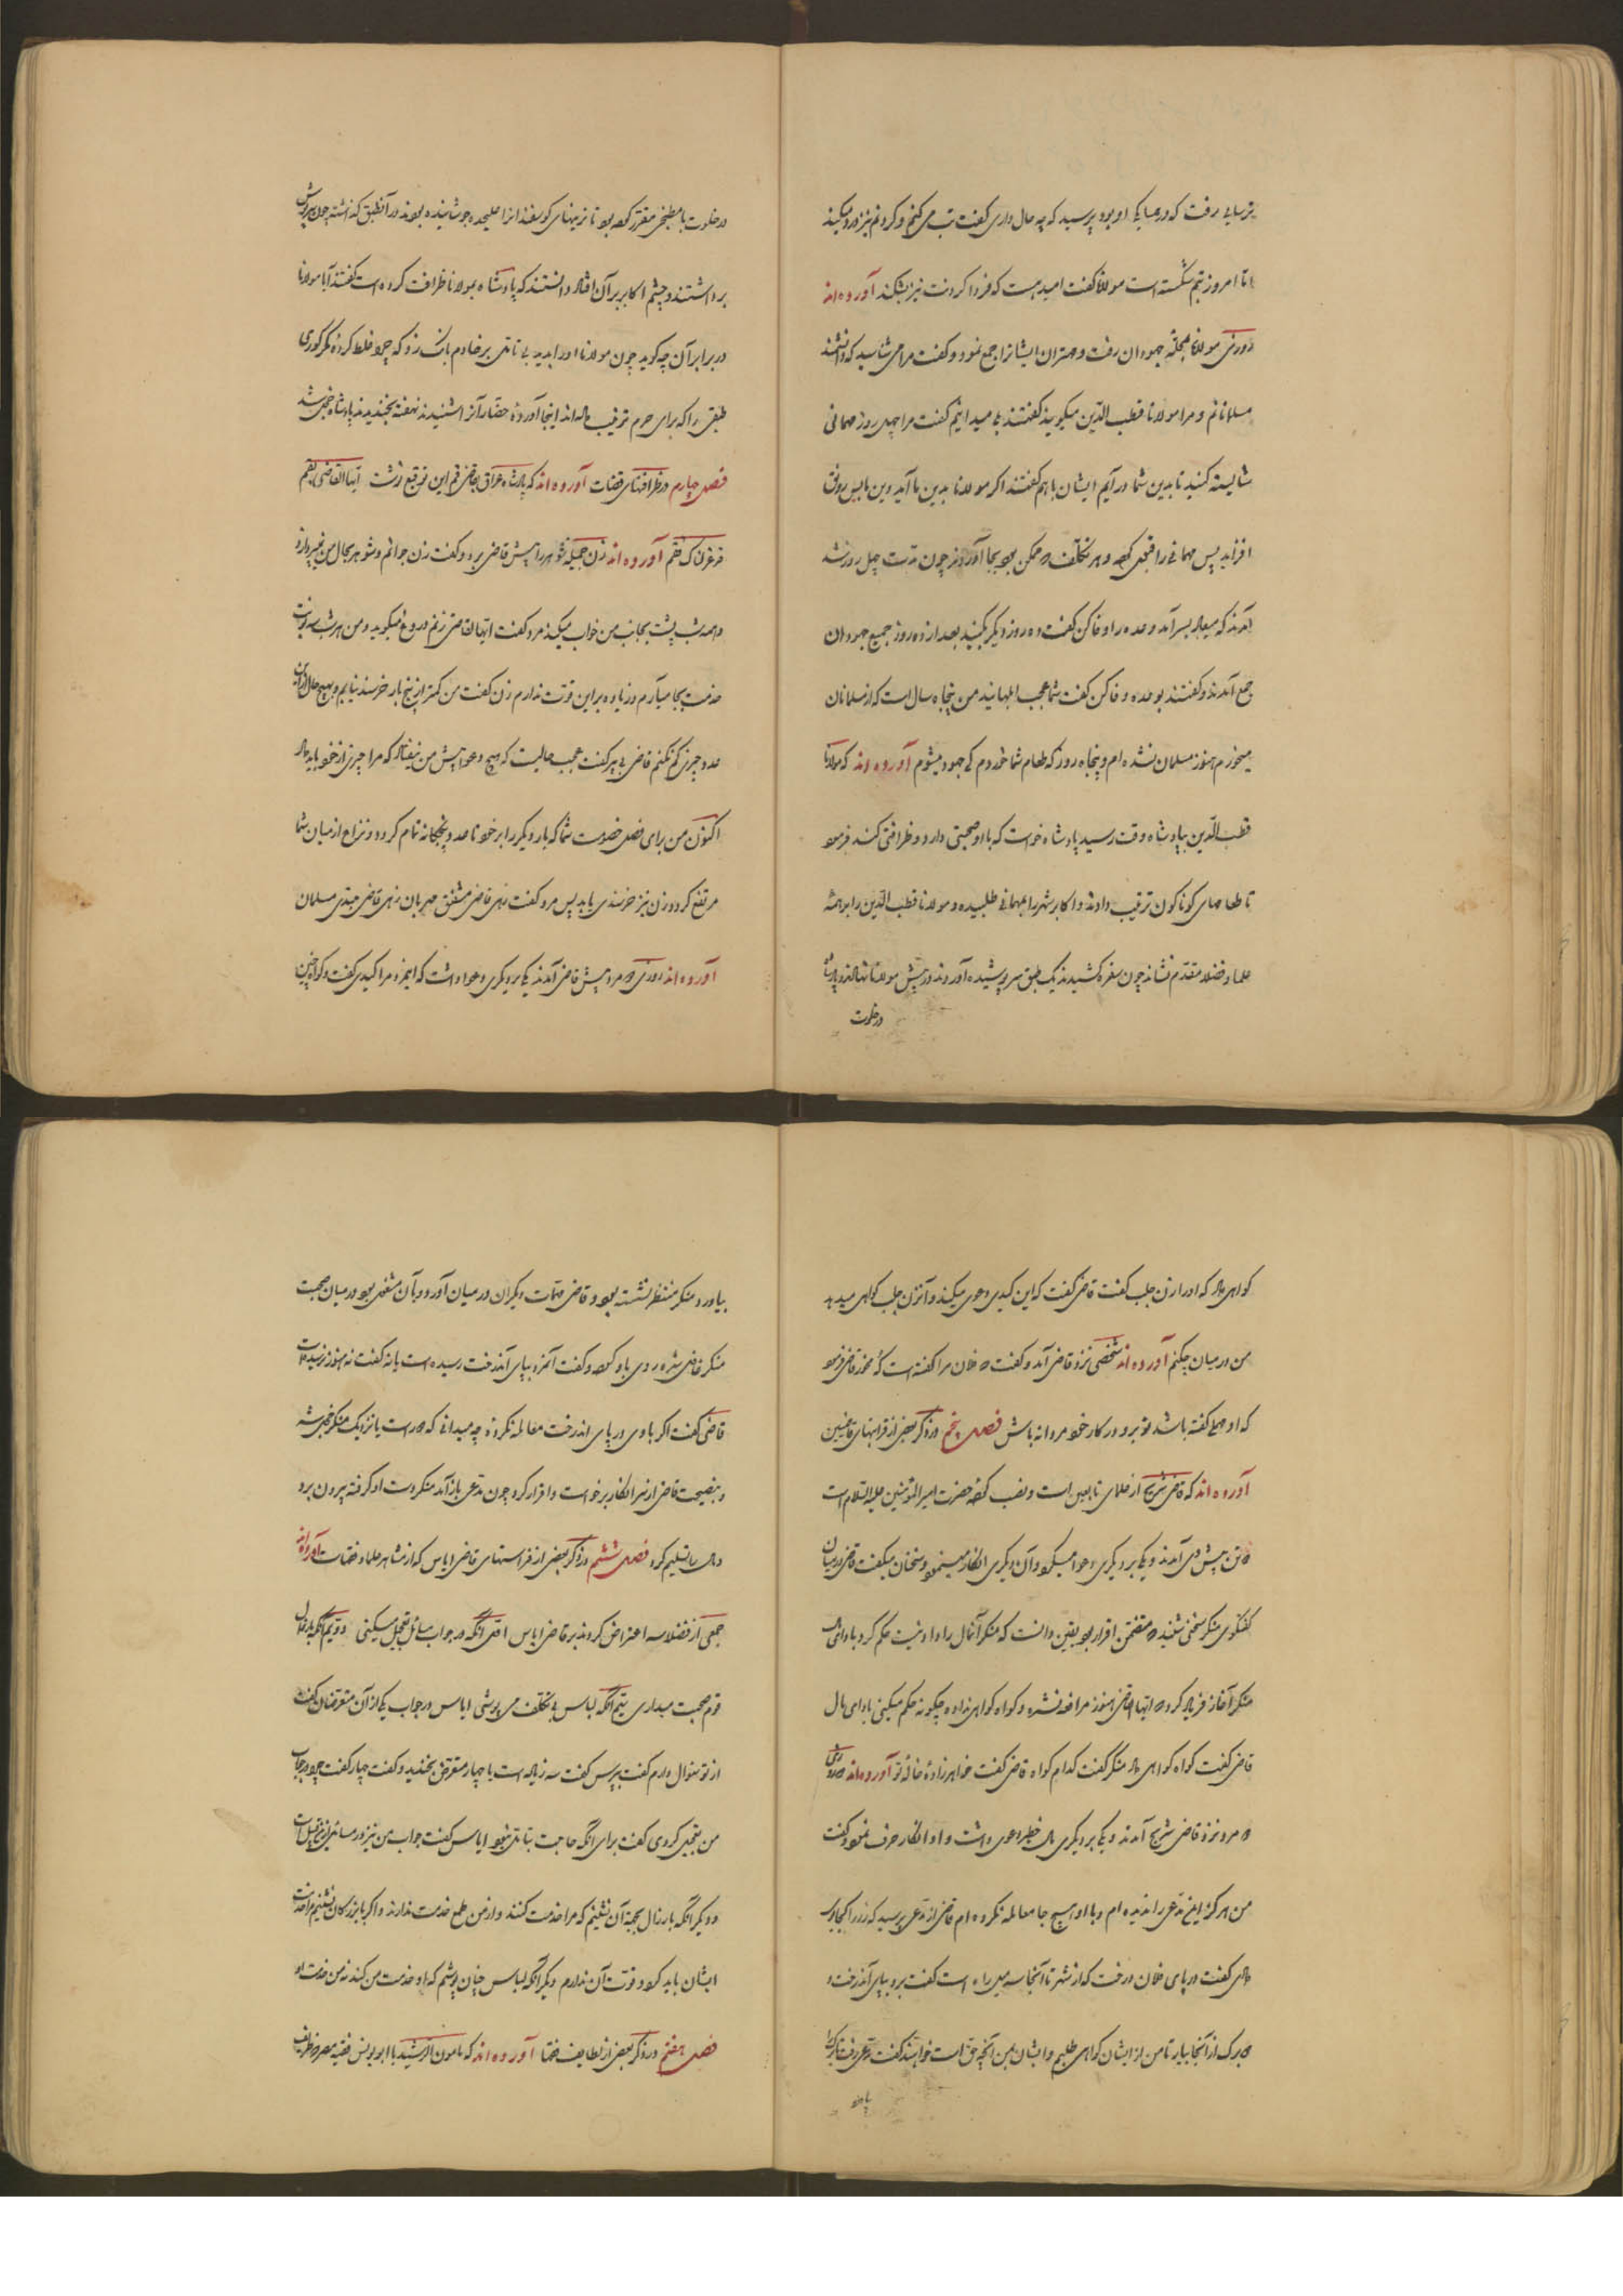 ترسایی رفت که در همسایگی او بود پرسید که چه حال داری گفت تب می کنم و گردنم نیز درد میکند
اما امروز تبم شکسته است مولانا گفت امید هست که فردا گردنت نیز بشکند آورده اند
روزی مولانا بمحله جهودان رفت و مهتران ایشانرا جمع نمود و گفت مرا می شناسید که دانشمند
مسلمانانم و مرا مولانا قطب الدین میگویند گفتند بلی میدانیم گفت مرا چهل روز مهمانی
شایسته کنید تا بدین شما درآیم ایشان باهم گفتند اگر مولانا بدین ما آید دین ما بس رونق
افزاید پس مهمانی را قبول کرده و هر تکلف که ممکن بود بجا آوردند چون مدت چهل روز شد
آمدند که میعاد بسر آمد وعده را وفا کن گفت ده روز دیگر بکنید بعد از ده روز جمیع جهودان
جمع آمدند و گفتند بوعده وفا کن گفت شما عجب ابلهانید من پنجاه سال است که از مسلمانان
میخورم هنوز مسلمان نشده ام و پنجاه روز که طعام شما خوردم کی جهود میشوم آورده اند که مولانا
قطب الدین بپادشاه وقت رسید پادشاه خواست که با او صحبتی دارد و ظرافتی کند فرمود
تا طعامهای گوناگون ترتیب دادند و اکابر شهر را بمهمانی طلبیده و مولانا قطب الدین را بر همه
علما و فضلا مقدم نشاند چون سفره کشیدند یک طبق سرپوشیده آوردند در پیش مولانا نهادند و پادشاه
در خلوت
در خلوت با مطبخی مقرر کرده بود تا نرمیهای گوسفند انرا علیحده جوشانیده بودند در آنطبق گذاشته چون سرپوش
برداشتند و چشم اکابر بر آن افتاد دانستند که پادشاه بمولانا ظرافت کرده است گفتند آیا مولانا
در برابر آن چه گوید چون مولانا او را بدید بی تامل بر خادم بانگ زد که چرا غلط کرده مگر کوری
طبقی را که برای حرم ترتیب داده اند اینجا آورده حضار آنرا شنیدند نهفته بخندیدند پادشاه خجل شد
فصل چهارم در ظرافتهای قضات آورده اند که پادشاه عراق بقاضی قم این توقیع نوشت ایها القاضی بقم
قد عزلناک فقم آورده اند زن جمیله شوهر را پیش قاضی برد و گفت زن جوانم و شوهر بحال من نمی پردازد
و همه شب پشت بجانب من خواب میکند مرد گفت ایها القاضی زنم دروغ میگوید و من هر شب سه نوبت
خدمت بجا میآرم و زیاده بر این قوت ندارم زن گفت من کمتر از پنج بار خرسند نیایم و بهیچ حال از این
عدد چیزی کم نکنم قاضی پیر گفت عجب حالیست که هیچ دعوا پیش من نیفتاد که مرا چیزی از خود نباید داد
اکنون من برای فصل خصومت شما که بار دیگر را بر خود تا عدد پنجگانه تمام گردد و نزاع از میان شما
مرتفع گردد و زن نیز خرسندی یابد پس مرد گفت زهی قاضی مشفق مهربان زهی قاضی جدی مسلمان
آورده اند روزی دو مرد پیش قاضی آمدند یکی بر دیگری دعوا داشت که این مرد مرا کیدی گفت و گواه چنین
گواهی داد که او را زن جلب گفت قاضی گفت که این کیدی دعوی میکند و آنزن جلب گواهی میدهد
من در میان چکنم آورده اند شخصی نزد قاضی آمد و گفت که فلان مرا گفته است قاضی فرمود
که او گفته باشد تو برو در کار خود مردانه باش فصل پنجم در ذکر بعضی از
آورده اند که قاضی شریح از علمای تابعین است و نصب کرده حضرت امیرالمؤمنین علیه السلام است
دو تن پیش وی آمدند و یکی بر دیگری دعوا میکرد و آن دیگری انکار مینمود و سخنان میگفت قاضی در میان
گفتگوی منکر سخنی شنید که متضمن اقرار بود بیقین دانست که منکر آنمال را داد نیست حکم کرد باداء مال
منکر آغاز فریاد کرد که ایها القاضی هنوز مرافعه نشده و گواه گواهی نداده چگونه حکم میکنی بادای مال
قاضی گفت گواه گواهی داد منکر گفت کدام گواه قاضی گفت خواهرزاده خاله تو آورده اند که روزی
دو مرد نزد قاضی شریح آمدند و یکی بر دیگری مال خطیر دعوی داشت و او انکار صرف نمود و گفت
من هرگز این مدعی را ندیده ام و با او هیچ جا معامله نکرده ام قاضی از مدعی پرسید که زر را کجا باو
دادی گفت در پای فلان درخت که از شهر تا آنجا سه میل راه است گفت برو بپای آندرخت و
دو برگ از آنجا بیار تا من از ایشان گواهی طلبم و ایشان بمن آنچه حق است خواهند گفت مدعی رفت تا برگ
بیاورد
بیاورد و منکر منتظر نشسته بود و قاضی مهمات دیگران در میان آورد و بآن مشغول بود در میان صحبت
منکر قاضی شریح روی باو کرد و گفت آنمرد بپای آندرخت رسیده است یا نه گفت نه هنوز نرسیده است
قاضی گفت اگر با وی در پای اندرخت معامله نکرده چه میدانی که دور است یا نزدیک منکر خجل شد
و بنصیحت قاضی از سر انکار برخواست و اقرار کرد چون مدعی باز آمد منکر دست او گرفته بیرون برد
و مال را تسلیم کرد فصل ششم در ذکر بعضی از فراستهای قاضی ایاس که از مشاهیر علما و قضات است آورده اند
جمعی از فضلا سه اعتراض کردند بر قاضی ایاس اول آنکه در جواب مسائل تعجیل میکنی دویم آنکه با رذال
قوم صحبت میداری سیم آنکه لباس بی تکلف می پوشی ایاس در جواب یکی از آن متعرضان گفت
از تو سئوال دارم گفت بپرس گفت سه زیاده است یا چهار متعرض بخندید و گفت چهار گفت چرا در جواب
من تعجیل کردی گفت برای آنکه حاجت بتامل نبود ایاس گفت جواب من نیز در مسائل از این قبیل است
و دیگر آنکه با رذال بجهة آن نشینم که مرا خدمت کنند و از من طمع خدمت ندارند و اگر با بزرگان نشینم مرا خدمت
ایشان باید کرد و قوت آن ندارم دیگر آنکه لباس چنان پوشم که او خدمت من کند نه من خدمت او
فصل هفتم در ذکر بعضی از لطایف فقها آورده اند که مامون الرشید با ابو یونس فقیه مصر